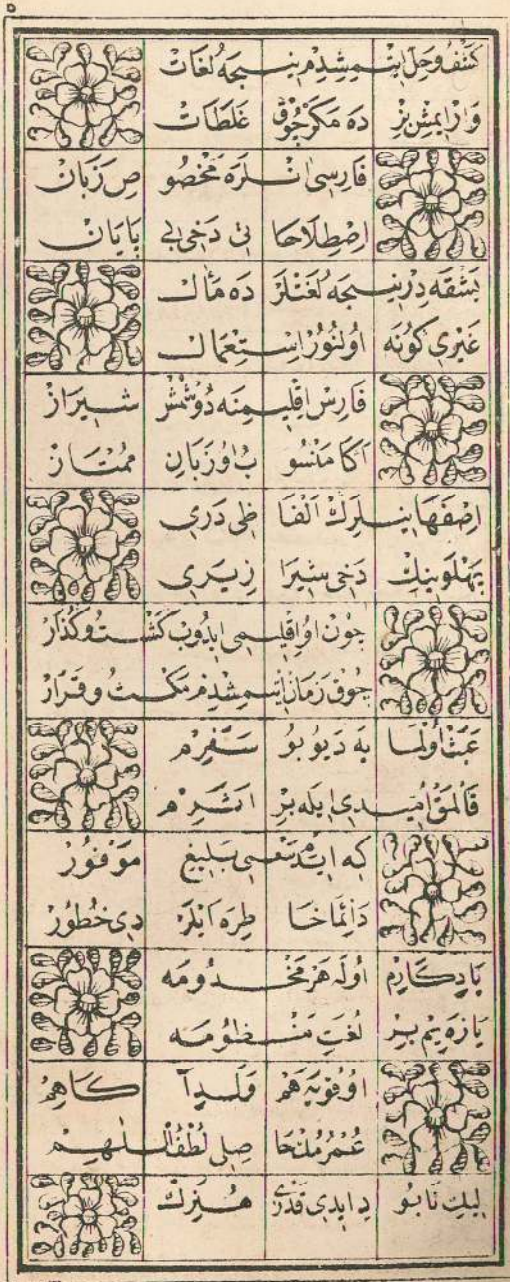 ٥
كَشْفُ و حَلّ ایتمشیدم نیجه لُغَاتْ
وَارْ ایمش بِزْدَه مَكَرْ چُوقْ غَلَطَاتْ
فَارِسِی انْلَرَه مَخْصُوصِ زَبَانْ
اِصْطِلَاحَاتِی دَخِی بی پَایَانْ
بَشْقَه دِرْ نیجه لُغَتْلَرْدَه مَآلْ
غَیْرِی كُونَه اُولنُورْ اِسْتِعْمَالْ
فَارِسْ اِقْلِیمِنَه دُوشْمُشْ شِیرَازْ
اَكَا مَنْسُوبْ اُو زَبَانِ مُمْتَازْ
اِصْفَهَانِیلَرِكْ اَلْفَاظِی دَرِی
پَهْلَوِینِكْ دَخِی شِیرَازِی یَرِی
چُونْ اُو اِقْلِیمِی ایدُوبْ كَشْتْ وَ كُذَارْ
چُوقْ زَمَانْ ایتمشدم مَكْثْ و قَرَارْ
عَبَثْ اُولْمَایَه دَیُو بُو سَفَرِمْ
قَالمَقْ اُمِیدِی ایلَه بِرْ اَثَرِمْ
كِه ایدَه نَفْعِی بَلِیغِ مَوْفُورْ
دَائِمَا خَاطِرَه ایلَرْدِی خُطُورْ
یَادِكَارِمْ اُولَه هَرْ مَخْدُومَه
یَازَه یِمْ بِرْ لُغَتِ مَنْظُومَه
اُوقُویَه هَمْ وَلَدِ آكَاهِمْ
عُمْرُمُكْ حَاصِلِی لُطْفُ اللهِمْ
لِیكْ نَابُودِ ایدِی قَدْرِی هُنَرِكْ